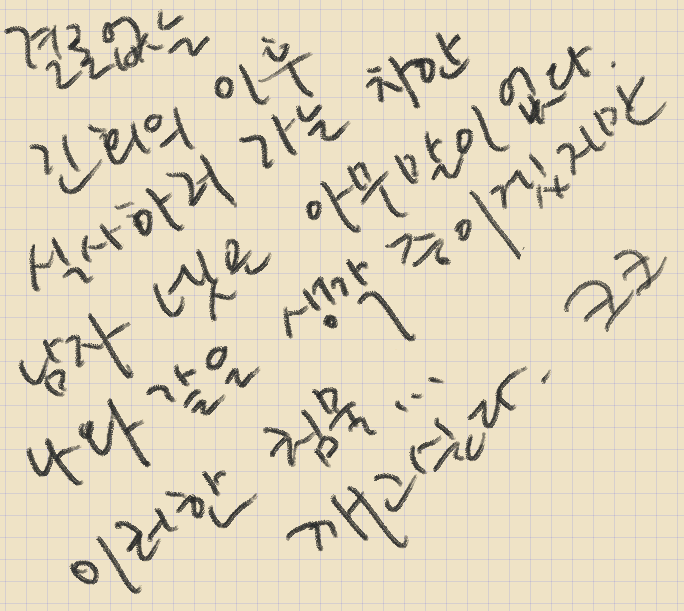 결론없는
긴회의 이후
식사하러 가는 차안
남자 넷은 아무말이없다.
나와 같은 생각 중이겠지만
이러한 침묵...
ㅋㅋ